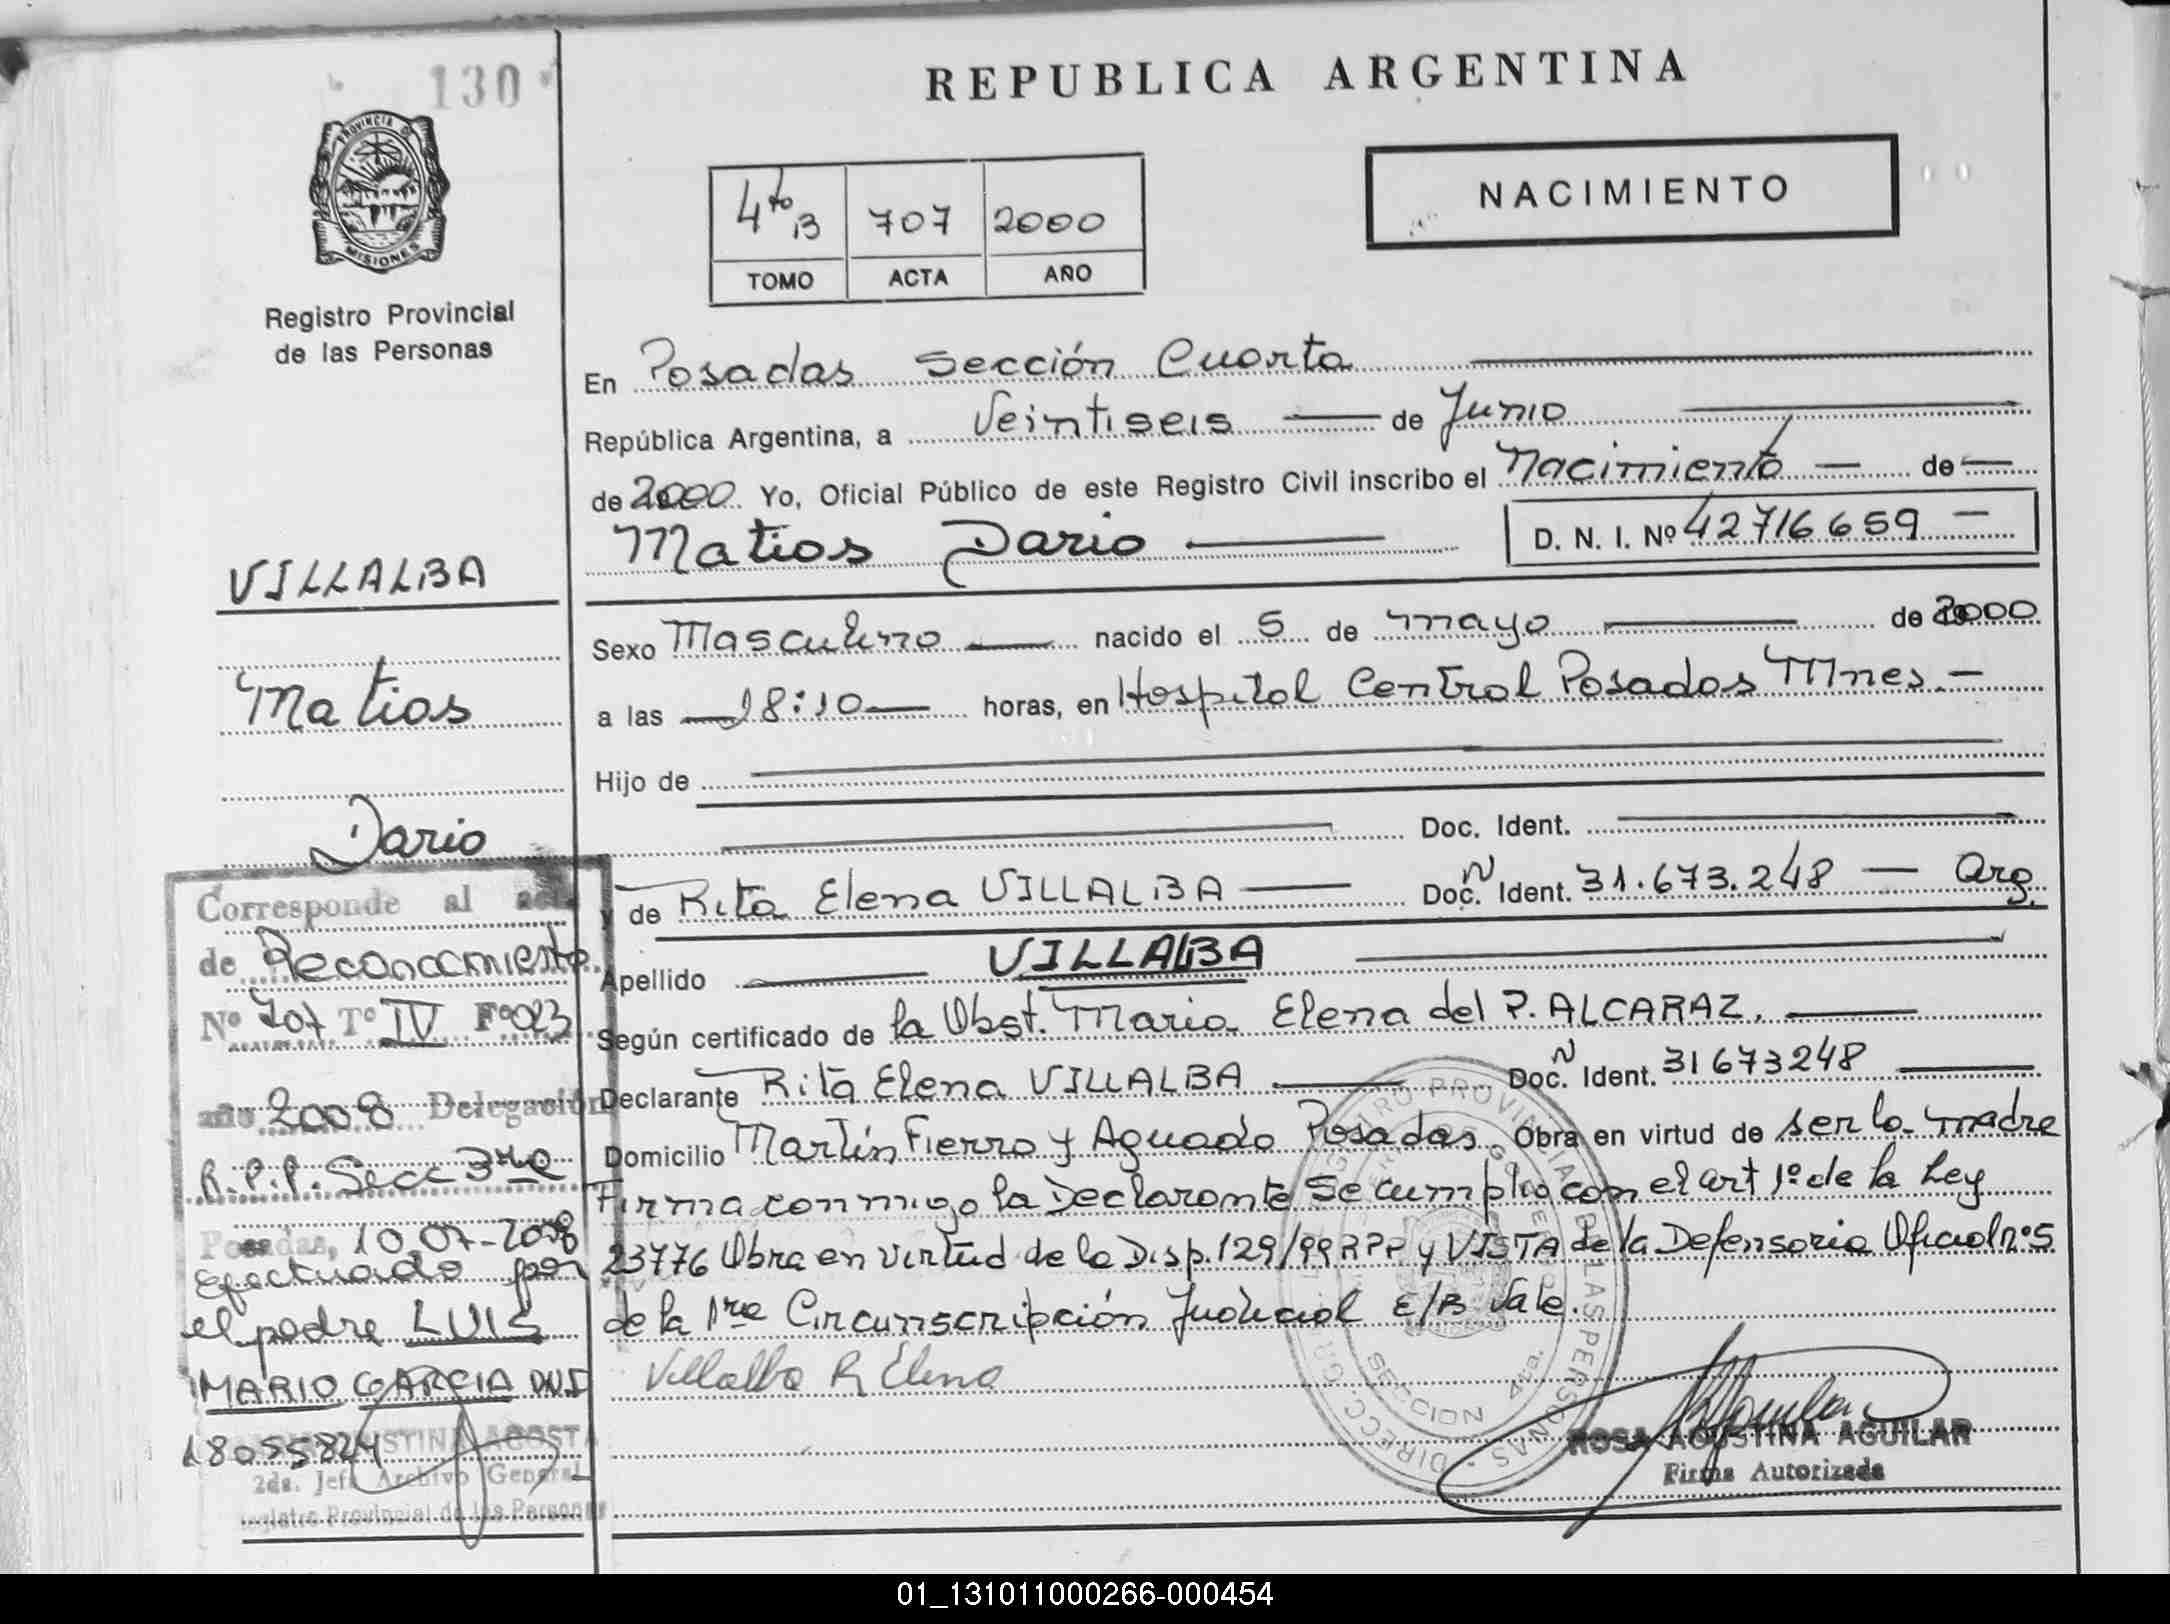 130
REPUBLICA ARGENTINA
PROVINCIA D
MISIONES
Registro Provincial
de las Personas
4to B 707 2000
TOMO ACTA AÑO
NACIMIENTO
En Posadas Sección Cuarta
República Argentina, a Veintiseis de Junio
de 2000 Yo, Oficial Público de este Registro Civil inscribo el Nacimiento de
Matias Dario
D. N. I. Nº 42716659
Sexo Masculino nacido el 5 de mayo de 2000
a las 18:10 horas, en Hospital Central Posadas Mnes.
Hijo de
Doc. Ident.
y de Rita Elena VILLALBA Doc. N Ident. 31.673.248 Arg.
Apellido VILLALBA
Según certificado de la Obst. Maria Elena del P. ALCARAZ.
Declarante Rita Elena VILLALBA Doc. N Ident. 31673248
Domicilio Martín Fierro y Aguado Posadas. Obra en virtud de ser la madre
Firma conmigo la Declarante Se cumplio con el art 1º de la Ley
23776 Obra en virtud de la Disp. 129/99 RPP y VISTA de la Defensoria Oficial nº 5
de la 1ra Circunscripción Judicial E/B Vale.
Villalba R Elena
ROSA AGUSTINA AGUILAR
Firma Autorizada
SECCION 4ta.
VILLALBA
Matias
Dario
Corresponde al acta
de Reconocimiento
Nº 707 Tº IV Fº 023
año 2008 Delegación
R.P.P. Secc 3ra
Posadas, 10-07-2008
efectuado por
el padre LUIS
MARIO GARCIA DNI
18055824
AGOSTA
2da. Jefa Archivo General
Registro Provincial de las Personas
01_131011000266-000454